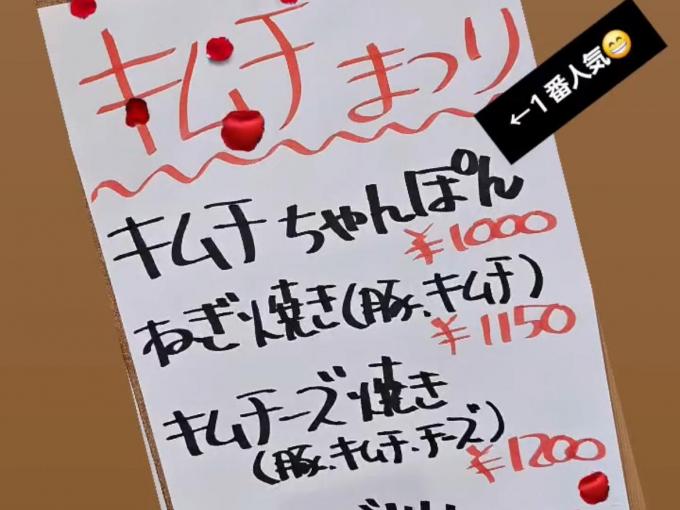 キムチまつり
←1番人気😁
キムチちゃんぽん
¥1000
ねぎ焼き(豚、キムチ)
¥1150
キムチーズ焼き
(豚、キムチ、チーズ)
¥1200